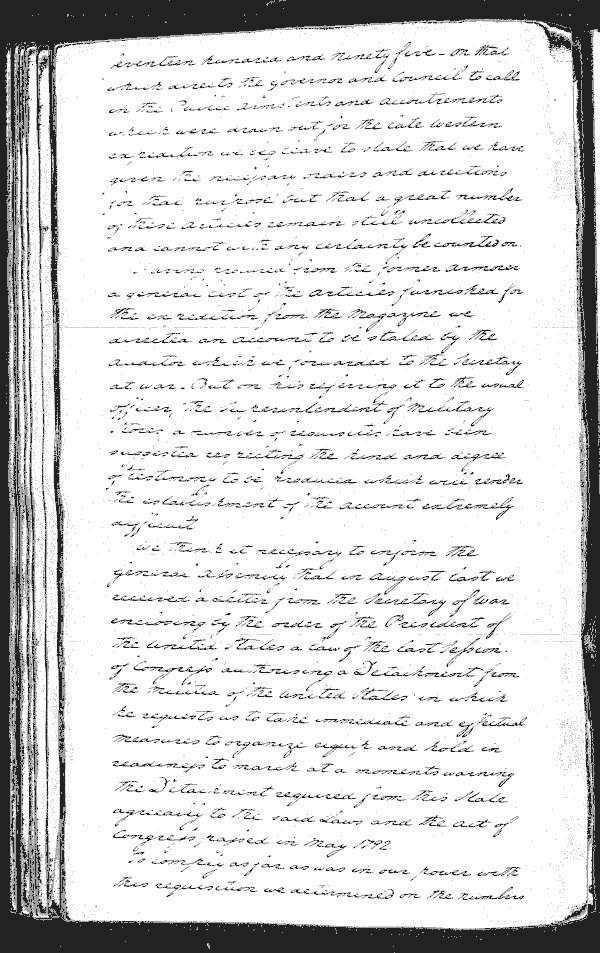 seventeen hundred and ninety five - on that
which directs the governor and Council to call
in the Public Arms Tents and accoutrements
which were drawn out for the late Western
expedition we beg leave to state that we have
given the necessary orders and directions
for that purpose but that a great number
of these articles remain still uncollected
and cannot with any certainty be counted on.
Having procured from the former armorer
a general List of the articles furnished for
the expedition from the Magazine we
directed an account to be stated by the
auditor which we forwarded to the Secretary
at war. But on his referring it to the usual
officer, the Superintendent of Military
Stores, a number of requisites have been
suggested respecting the kind and degree
of testimony to be produced which will render
the establishment of the account extremely
difficult
We think it necessary to inform the
general assembly that in august last we
received a letter from the Secretary of War
enclosing by the order of the President of
the United States a law of the last Session
of Congress authorising a Detachment from
the militia of the United States in which
he requests us to take immediate and effectual
measures to organize equip and hold in
readiness to march at a moments warning
the Detachment required from this State
agreeably to the said Laws and the act of
Congress, passed in May 1792
To comply as far as was in our power with
this requisition we determined on the numbers